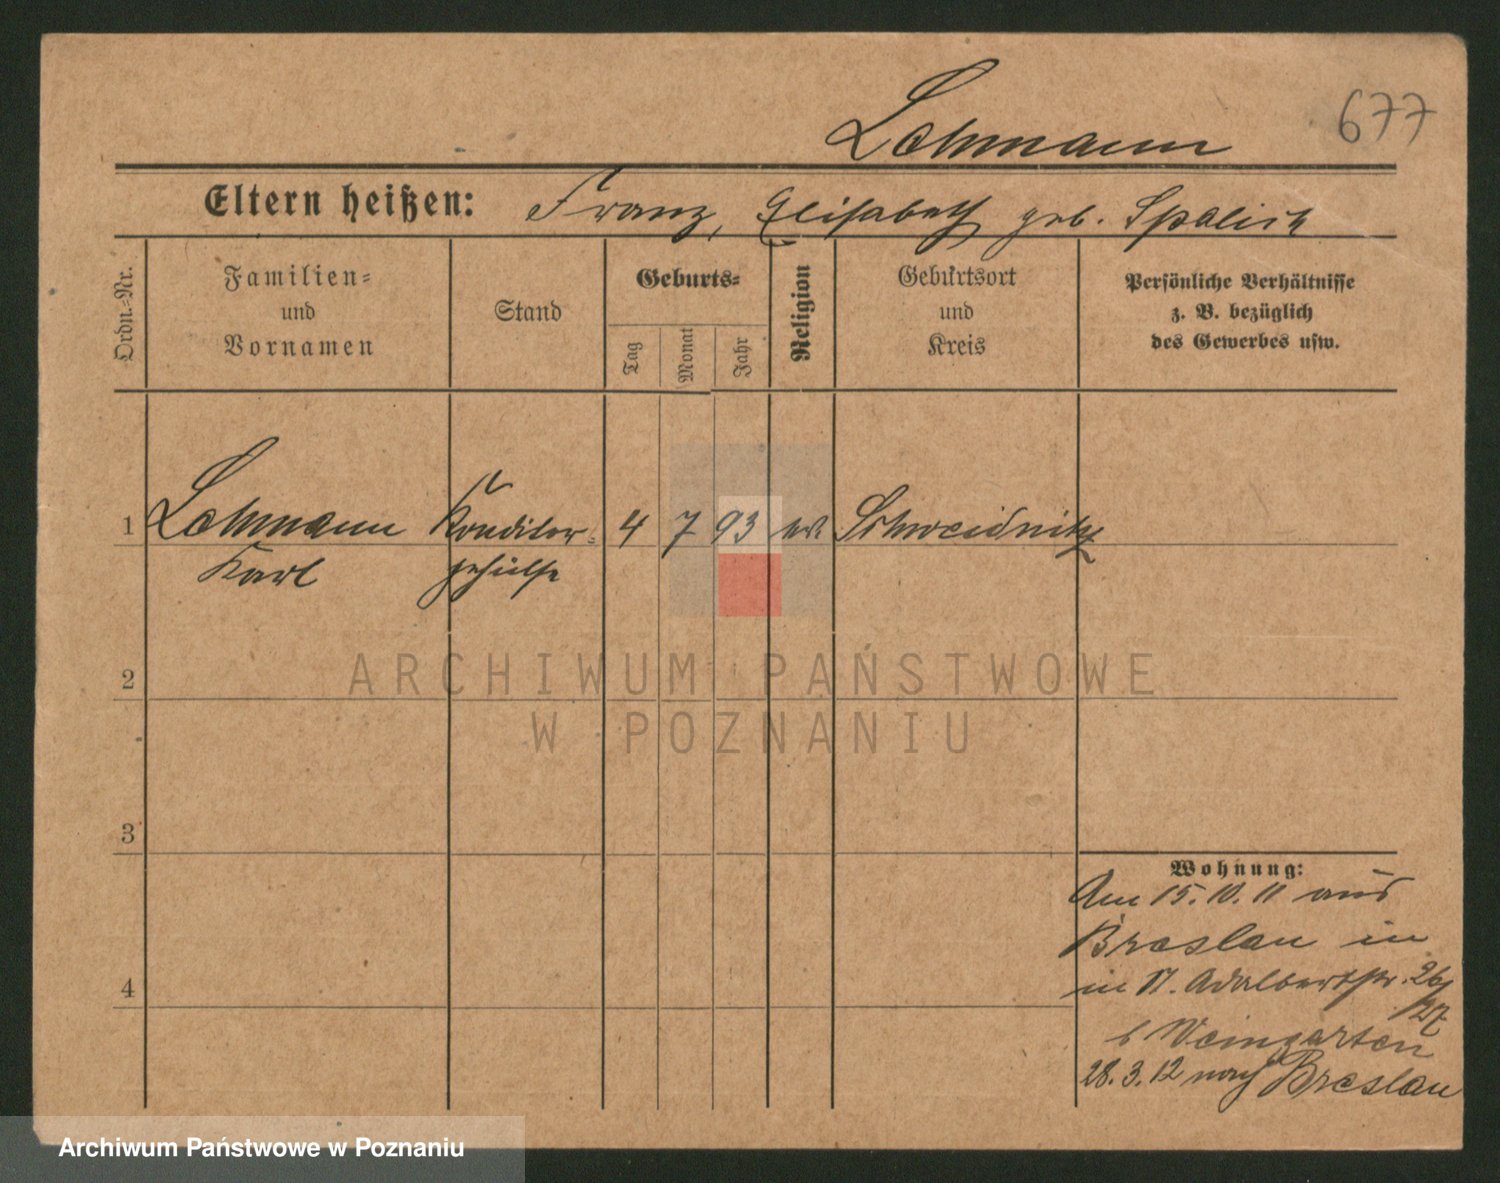 Lohmann
677
Eltern heißen: Franz, Elisabeth geb.
Ordn.=Nr.
Familien=
und
Vornamen
Stand
Geburts=
Tag
Monat
Jahr
Religion
Geburtsort
und
Kreis
Persönliche Verhältnisse
z. B. bezüglich
des Gewerbes usw.
1 Lohmann Konditor= 4 7 93 Schweidnitz
Karl gehülfe
2
ARCHIWUM PAŃSTWOWE
W POZNANIU
3
Wohnung:
Am 15.10.11 aus
Breslau in
4
in St. Adalbertstr. 26/
27
b Weingarten
28.3.12 nach Breslau
Archiwum Państwowe w Poznaniu